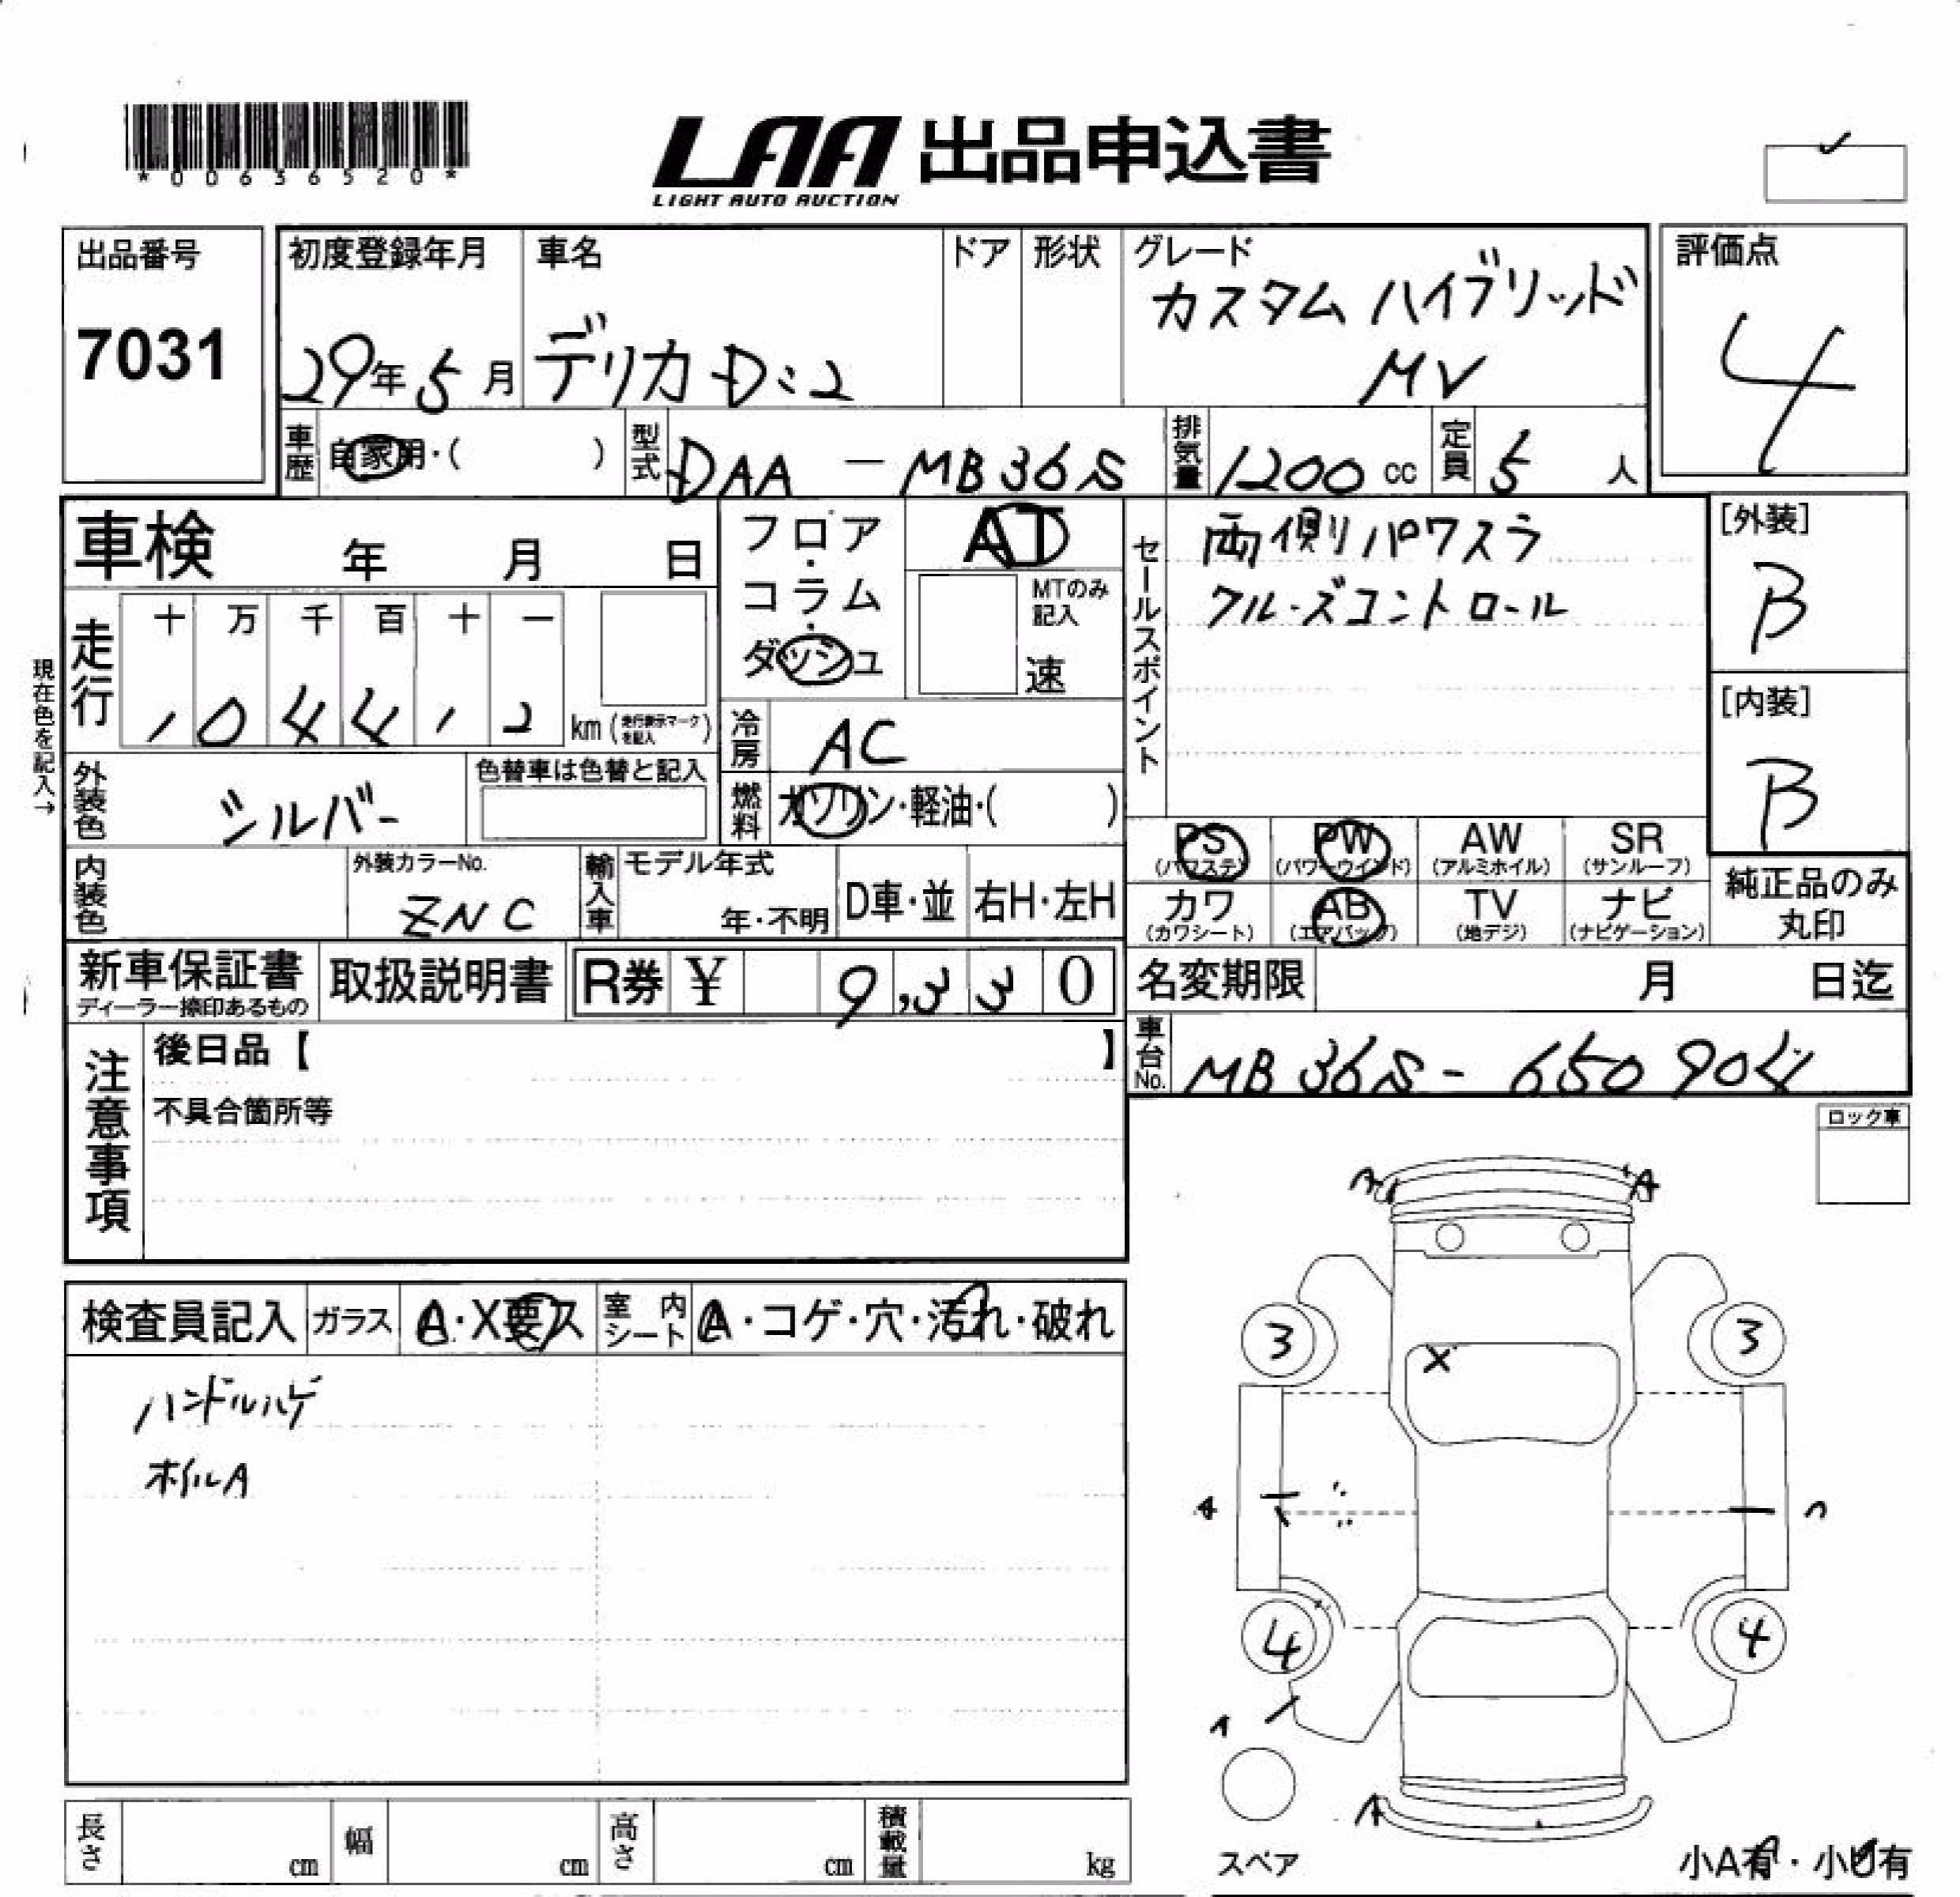 *00636520*
LAA 出品申込書
LIGHT AUTO AUCTION
出品番号
7031
初度登録年月
29年5月
車名
デリカD:2
ドア
形状
グレード
カスタム ハイブリッド
MV
評価点
4
車歴
自家用・( )
型式
DAA - MB36S
排気量
1200 cc
定員
5 人
車検 年 月 日
フロア・コラム・ダッシュ
AT
MTのみ記入
速
セールスポイント
両側パワスラ
クルーズコントロール
[外装]
B
[内装]
B
現在色を記入→
走行
十 万 千 百 十 一
1 0 4 4 1 2
km (走行表示マークを記入)
冷房
AC
外装色
シルバー
色替車は色替と記入
燃料
ガソリン・軽油・( )
PS (パワステ)
PW (パワーウインド)
AW (アルミホイル)
SR (サンルーフ)
カワ (カワシート)
AB (エアバッグ)
TV (地デジ)
ナビ (ナビゲーション)
純正品のみ丸印
内装色
外装カラーNo.
ZNC
輸入車
モデル年式
年・不明
D車・並
右H・左H
新車保証書
ディーラー捺印あるもの
取扱説明書
R券 ¥ 9,330
名変期限 月 日迄
車台No.
MB36S- 650904
注意事項
後日品【 】
不具合箇所等
ロック車
検査員記入
ガラス
A・X要ス
室内シート
A・コゲ・穴・汚れ・破れ
ハンドルハゲ
ホイルA
A A
3 3
X
4 4
A
スペア
小A有・小U有
長さ cm
幅 cm
高さ cm
積載量 kg